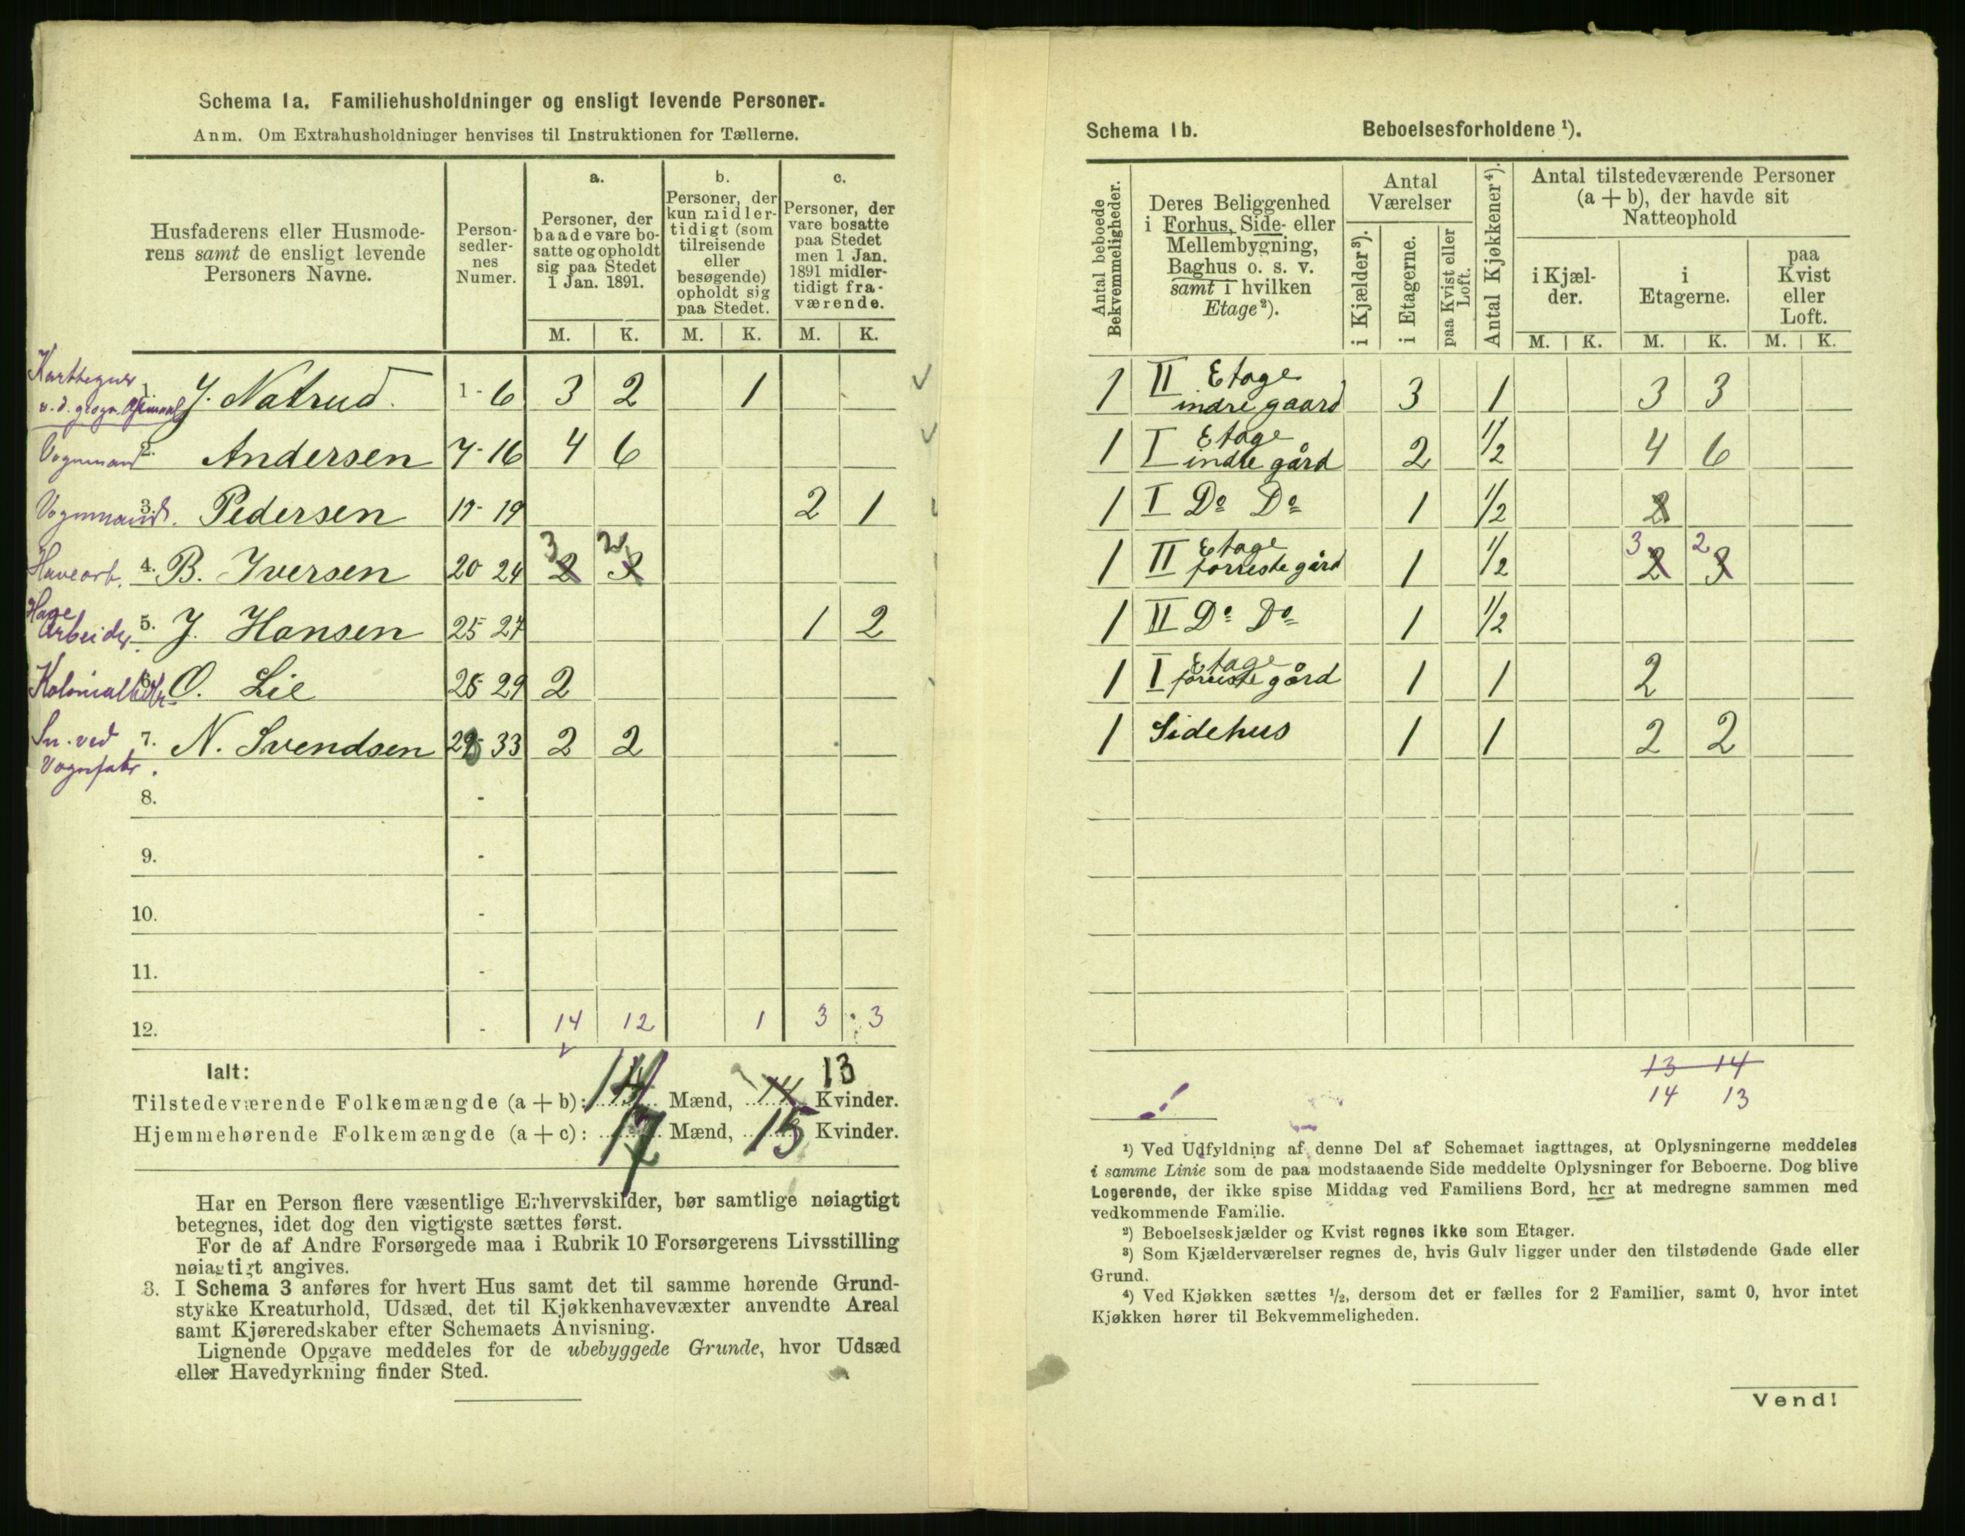 Schema 1a. Familiehusholdninger og ensligt levende Personer.
Anm. Om Extrahusholdninger henvises til Instruktionen for Tællerne.
Husfaderens eller Husmoderens samt de ensligt levende Personers Navne.
Person-sedler-nes Numer.
a.
Personer, der baade vare bosatte og opholdt sig paa Stedet 1 Jan. 1891.
b.
Personer, der kun midlertidigt (som tilreisende eller besøgende) opholdt sig paa Stedet.
c.
Personer, der vare bosatte paa Stedet men 1 Jan. 1891 midlertidigt fraværende.
M. K. M. K. M. K.
1. J. Natrud. 1-6 3 2 1
Vognmand 2. Andersen 7-16 4 6
Vognmand. 3. Pedersen 17-19 2 1
Havearb. 4. B. Iversen 20 24 3 2
Have Arbeider. 5. J. Hansen 25 27 1 2
6. O. Lie 28 29 2
Sn. ved Vognfabr. 7. N. Svendsen 33 2 2
8. -
9. -
10. -
11. -
12. - 14 12 1 3 3
Ialt:
Tilstedeværende Folkemængde (a + b): 14 Mænd, 13 Kvinder.
Hjemmehørende Folkemængde (a + c): 17 Mænd, 15 Kvinder.
Har en Person flere væsentlige Erhvervskilder, bør samtlige nøiagtigt
betegnes, idet dog den vigtigste sættes først.
For de af Andre Forsørgede maa i Rubrik 10 Forsørgerens Livsstilling
nøiagtigt angives.
3. I Schema 3 anføres for hvert Hus samt det til samme hørende Grund-
stykke Kreaturhold, Udsæd, det til Kjøkkenhavevæxter anvendte Areal
samt Kjøreredskaber efter Schemaets Anvisning.
Lignende Opgave meddeles for de ubebyggede Grunde, hvor Udsæd
eller Havedyrkning finder Sted.
Schema 1b. Beboelsesforholdene ¹).
Antal beboede Bekvemmeligheder.
Deres Beliggenhed i Forhus, Side- eller Mellembygning, Baghus o. s. v. samt i hvilken Etage²).
Antal Værelser
i Kjælder³).
i Etagerne.
paa Kvist eller Loft.
Antal Kjøkkener⁴).
Antal tilstedeværende Personer (a + b), der havde sit Natteophold
i Kjælder.
i Etagerne.
paa Kvist eller Loft.
M. K. M. K. M. K.
1 II Etage indre gaard 3 1 3 3
1 I Etage indre gård 2 1/2 4 6
1 I Do Do 1 1/2 2
1 II Etage forreste gård 1 1/2 3 2
1 II Do Do 1 1/2
1 I Etage forreste gård 1 1 2
1 Sidehus 1 1 2 2
13 14
14 13
¹) Ved Udfyldning af denne Del af Schemaet iagttages, at Oplysningerne meddeles
i samme Linie som de paa modstaaende Side meddelte Oplysninger for Beboerne. Dog blive
Logerende, der ikke spise Middag ved Familiens Bord, her at medregne sammen med
vedkommende Familie.
²) Beboelseskjælder og Kvist regnes ikke som Etager.
³) Som Kjælderværelser regnes de, hvis Gulv ligger under den tilstødende Gade eller
Grund.
⁴) Ved Kjøkken sættes ½, dersom det er fælles for 2 Familier, samt 0, hvor intet
Kjøkken hører til Bekvemmeligheden.
Vend!